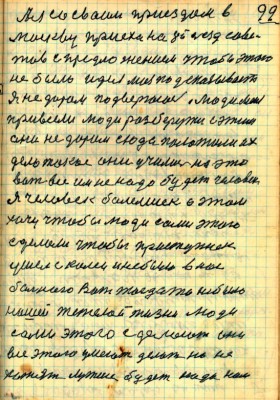 99
Мы со своим приездом в
Москву приехали на 36 съезд сове-
тов с предложением чтобы этого
не было идея мне подсказывает
Я не даром подвергаюсь. Меня сюда
привели люди разберути с этим
они не даром сюда положили их
дело такое они учились на это
вот все им не надо будет человек
Я человек болельщик о этом
хочу чтобы люди сами этого
сделали чтобы преступник
ушел с колеи и не было в нас
больного Вот тогда то не было
нашей тяжелой жизни люди
сами этого сделают они
все этого умеют делать но не
хотят лучше будет когда нам